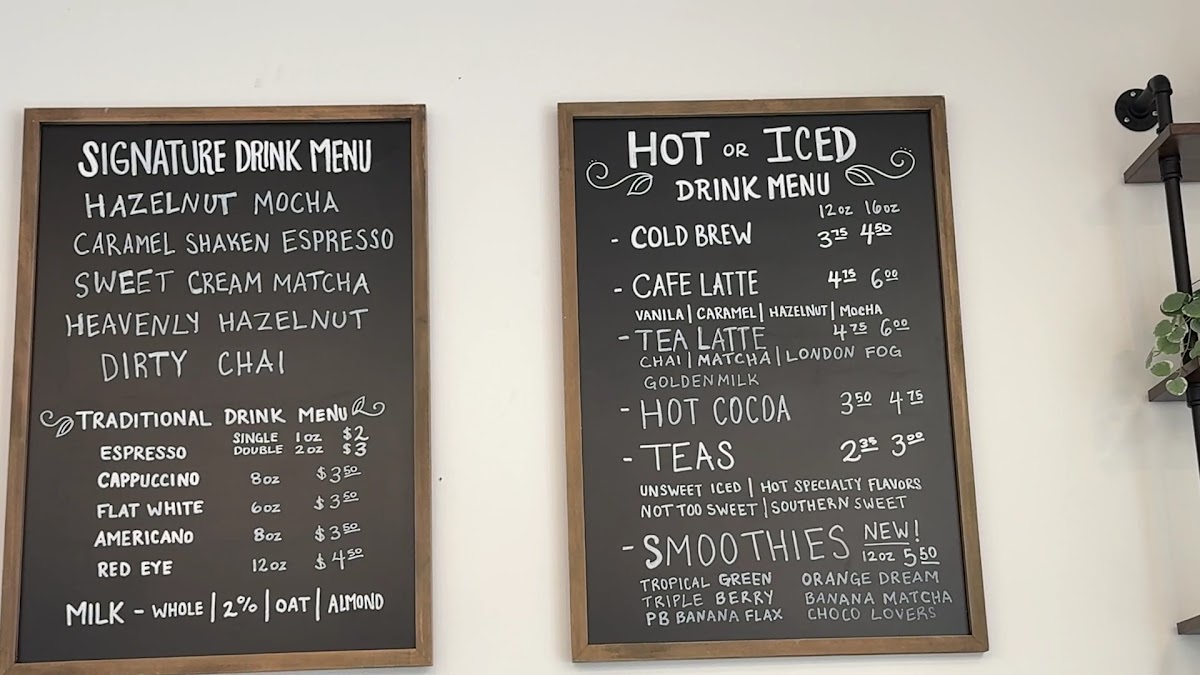 SIGNATURE DRINK MENU
HAZELNUT MOCHA
CARAMEL SHAKEN ESPRESSO
SWEET CREAM MATCHA
HEAVENLY HAZELNUT
DIRTY CHAI
TRADITIONAL DRINK MENU
ESPRESSO SINGLE 1oz $2
DOUBLE 2oz $3
CAPPUCCINO 8oz $3.50
FLAT WHITE 6oz $3.50
AMERICANO 8oz $3.50
RED EYE 12oz $4.50
MILK - WHOLE | 2% | OAT | ALMOND
HOT OR ICED
DRINK MENU
12oz 16oz
- COLD BREW 3.75 4.50
- CAFE LATTE 4.75 6.00
VANILA | CARAMEL | HAZELNUT | MOCHA
- TEA LATTE 4.75 6.00
CHAI | MATCHA | LONDON FOG
GOLDENMILK
- HOT COCOA 3.50 4.75
- TEAS 2.35 3.00
UNSWEET ICED | HOT SPECIALTY FLAVORS
NOT TOO SWEET | SOUTHERN SWEET
- SMOOTHIES NEW!
12oz 5.50
TROPICAL GREEN ORANGE DREAM
TRIPLE BERRY BANANA MATCHA
PB BANANA FLAX CHOCO LOVERS